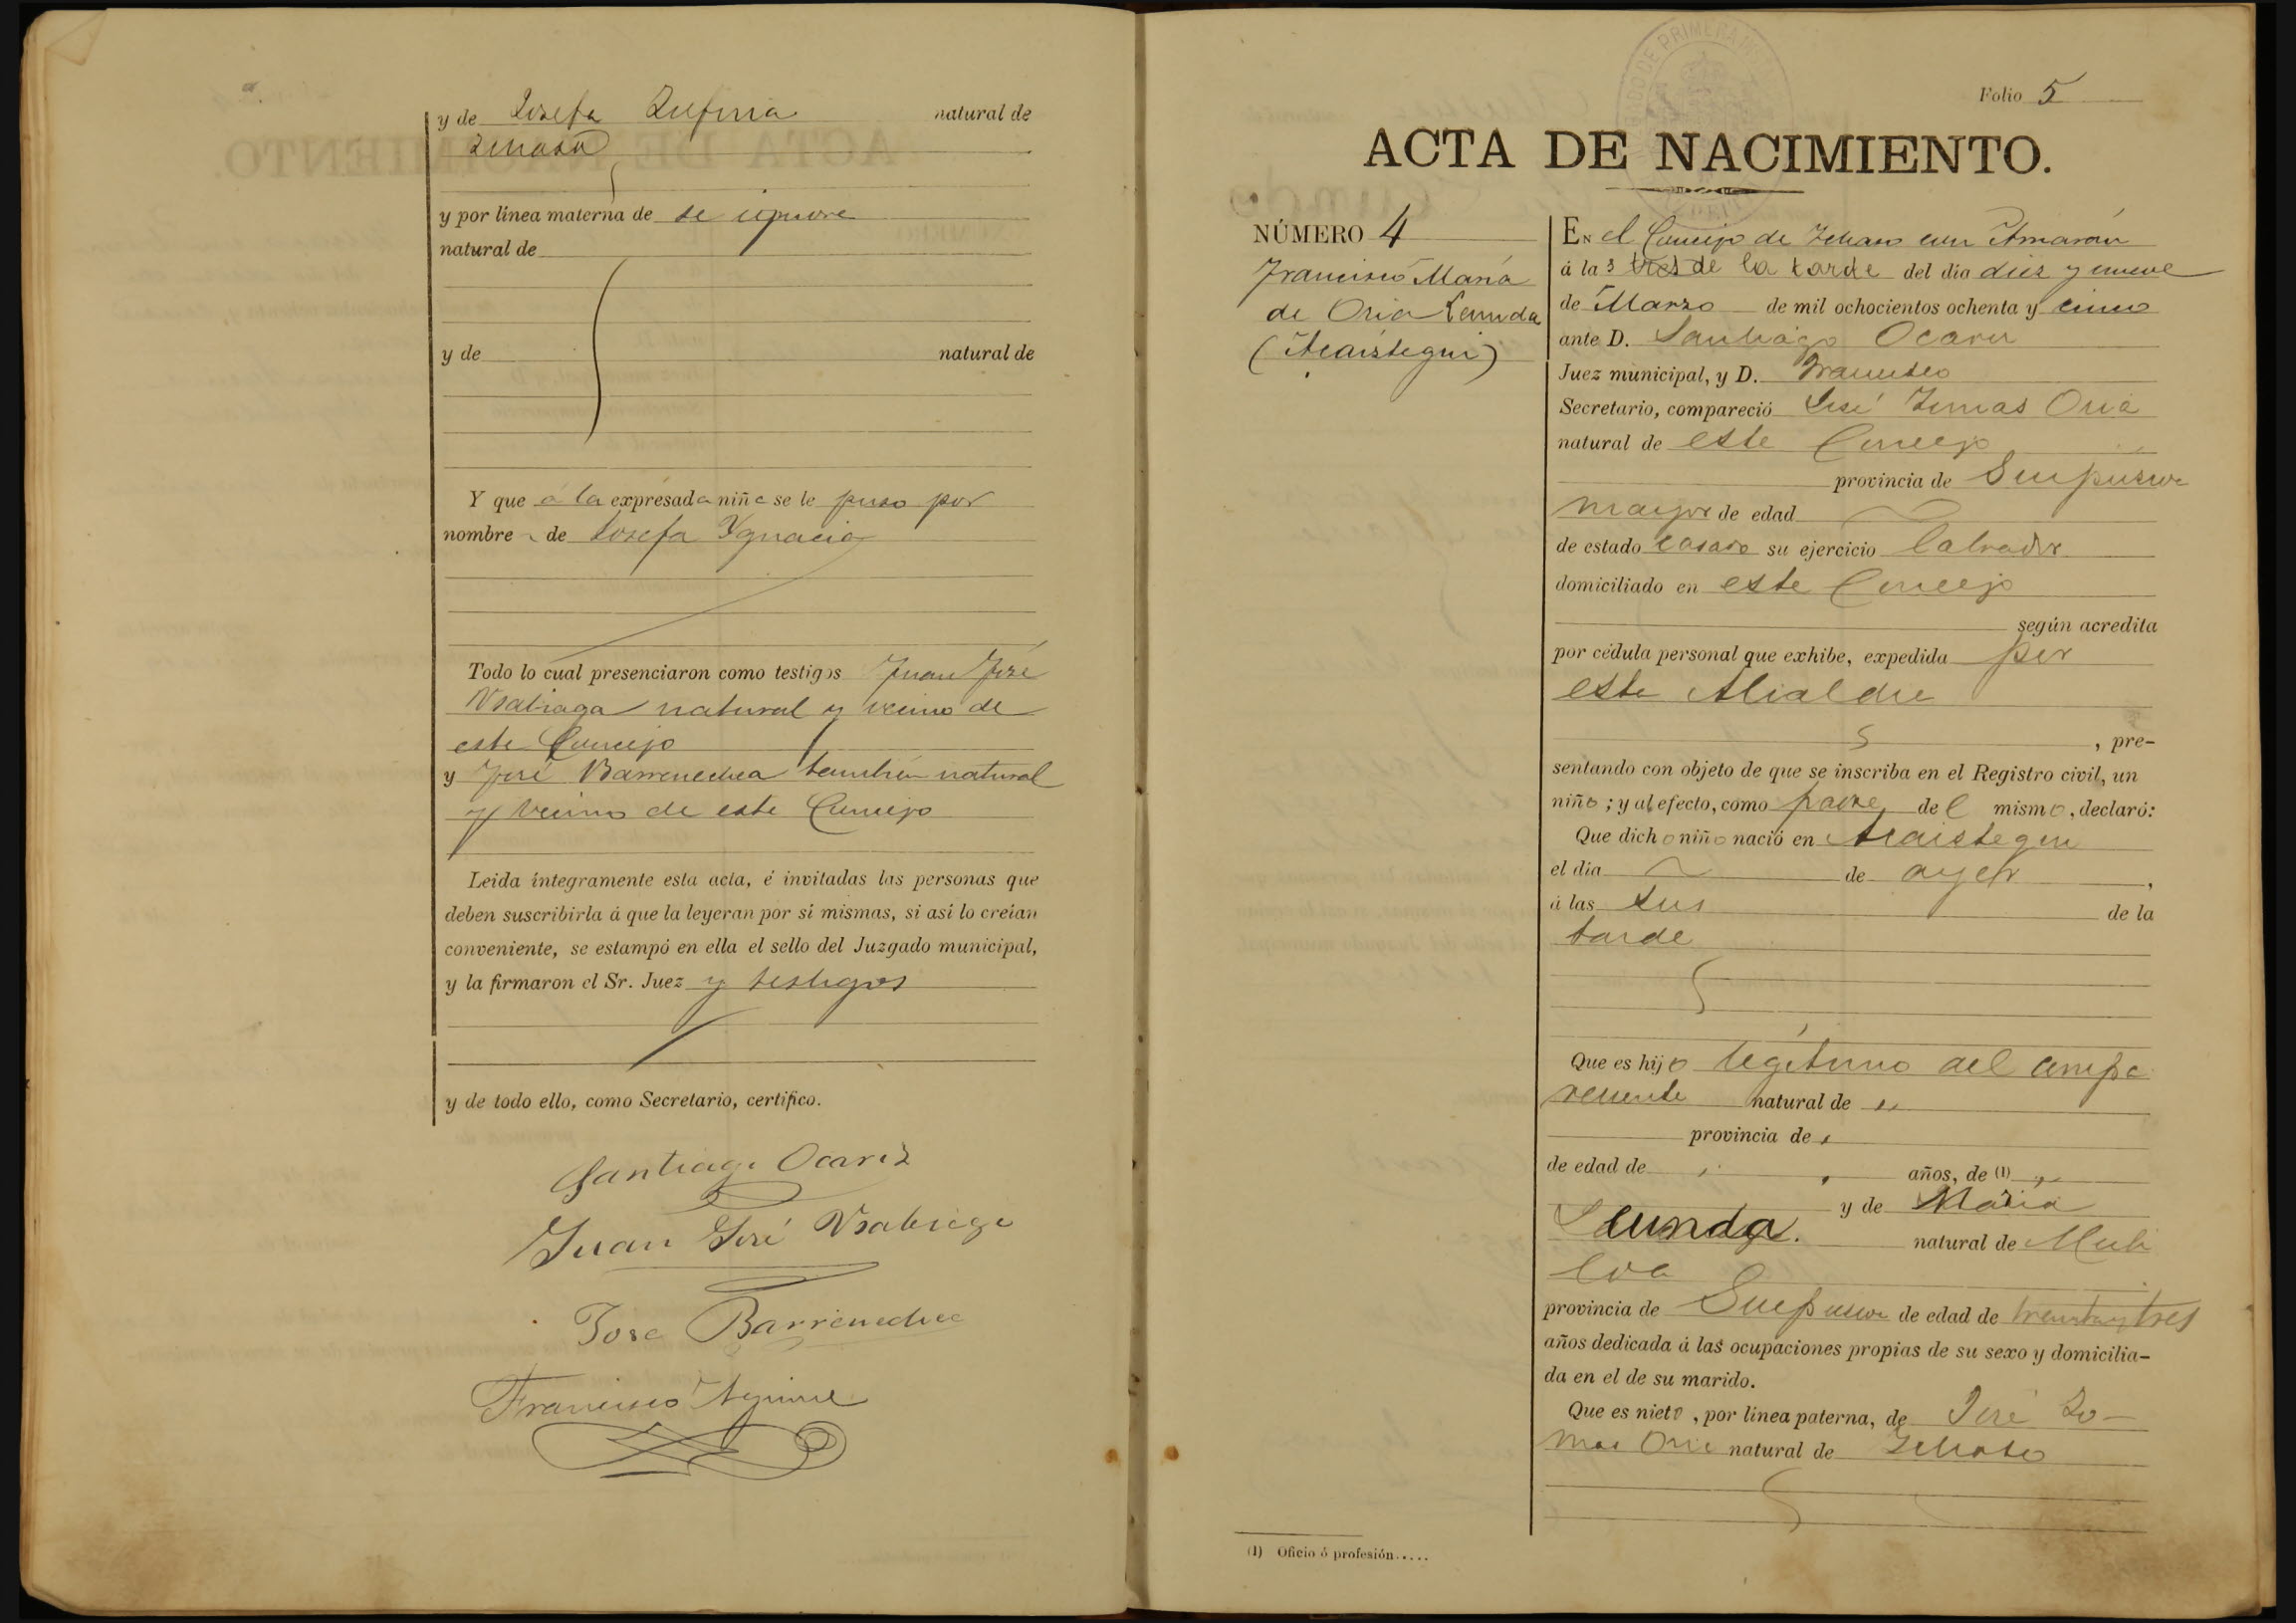 y de Josefa Zufiria natural de
y por línea materna de se ignora
natural de
y de natural de
Y que á la expresada niña se le puso por
nombre de Josefa Ygnacia
Todo lo cual presenciaron como testigos Juan José
Usabiaga natural y vecino de
este Concejo
y José Barrenechea también natural
y vecino de este Concejo
Leida íntegramente esta acta, é invitadas las personas que
deben suscribirla á que la leyeran por sí mismas, si así lo creían
conveniente, se estampó en ella el sello del Juzgado municipal,
y la firmaron el Sr. Juez y testigos
y de todo ello, como Secretario, certifico.
Santiago Ocariz
Juan José Usabiaga
Jose Barrenechea
Francisco Aguirre
Folio 5
ACTA DE NACIMIENTO.
NÚMERO 4
Francisco María
de Oria
EN el Concejo de
á la s tres de la tarde del dia diez y nueve
de Marzo de mil ochocientos ochenta y cinco
ante D. Santiago Ocariz
Juez municipal, y D. Francisco
Secretario, compareció José Oria
natural de este Concejo
provincia de Guipuzcoa
mayor de edad
de estado casado su ejercicio labrador
domiciliado en este Concejo
según acredita
por cédula personal que exhibe, expedida por
este Alcalde
, pre-
sentando con objeto de que se inscriba en el Registro civil, un
niño ; y al efecto, como padre del mismo, declaró:
Que dicho niño nació en
el dia de ayer ,
á las de la
tarde
Que es hijo legítimo del compa
reciente natural de "
provincia de "
de edad de " " años, de (1) "
y de María
natural de
provincia de Guipuzcoa de edad de treinta y tres
años dedicada á las ocupaciones propias de su sexo y domicilia-
da en el de su marido.
Que es nieto, por línea paterna, de José
Oria natural de
(1) Oficio ó profesión.....